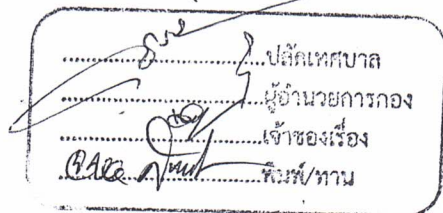 ....................ปลัดเทศบาล
....................ผู้อำนวยการกอง
....................เจ้าของเรื่อง
....................พิมพ์/ทาน